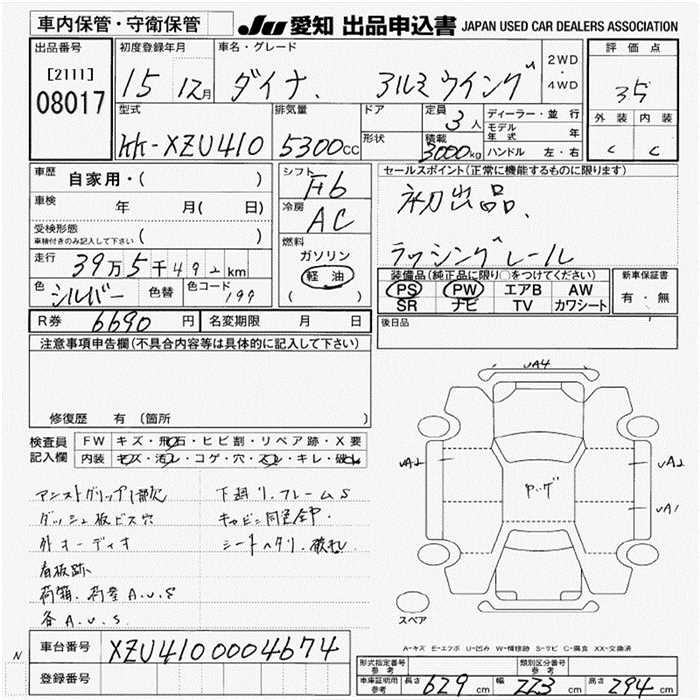 車内保管・守衛保管
JU 愛知 出品申込書 JAPAN USED CAR DEALERS ASSOCIATION
出品番号
[2111]
08017
初度登録年月
15 12月
車名・グレード
ダイナ. アルミウイング
2WD
・
4WD
評価点
3.5
外装 内装
C C
型式
KK-XZU410
排気量
5300CC
ドア
形状
定員
3人
積載
3000kg
ディーラー・並行
モデル年式 年
ハンドル 左・右
車歴 自家用・( )
車検 年 月( 日)
受検形態
車検付きのみ記入して下さい ( )
走行 39万5千492km
色 シルバー 色替 色コード 199
シフト
F6
冷房
AC
燃料
ガソリン
軽油
( )
セールスポイント(正常に機能するものに限ります)
初出品.
ラッシングレール
装備品(純正品に限り○をつけてください)
PS PW エアB AW
SR ナビ TV カワシート
新車保証書
有・無
R券 6690円 名変期限 月 日
後日品
注意事項申告欄(不具合内容等は具体的に記入して下さい)
修復歴 有(箇所 )
検査員記入欄
FW キズ・飛石・ヒビ割・リペア跡・X要
内装 キズ・汚レ・コゲ・穴・スレ・キレ・破レ
アシストグリップ1部欠
ダッシュ板ビス穴
外オーディオ
看板跡
荷箱.荷台A.U.S
各A.U.S
下廻り.フレームS
キャビン同色全P.
シートヘタリ.破れ
UA4
UA2
UA2
UA1
スペア
A-キズ E-エクボ U-凹み W-補修跡 S-サビ C-腐食 XX-交換済
N
車台番号 XZU4100004674
登録番号
形式指定番号 参考
類別区分番号 参考
車庫証明用 参考 長さ 629cm 幅 223cm 高さ 294cm